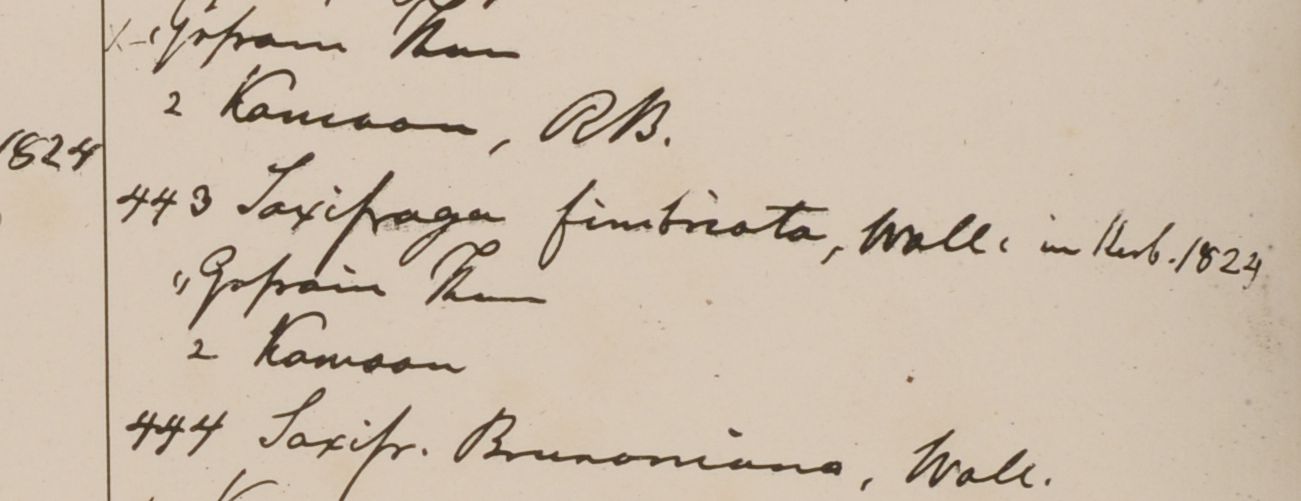 Gossain Than
2 Kamaon, RB.
1824
443 Saxifraga fimbriata, Wall. in Herb. 1824
" Gossain Than
2 Kamaon
444 Saxifr. Brunoniana, Wall.